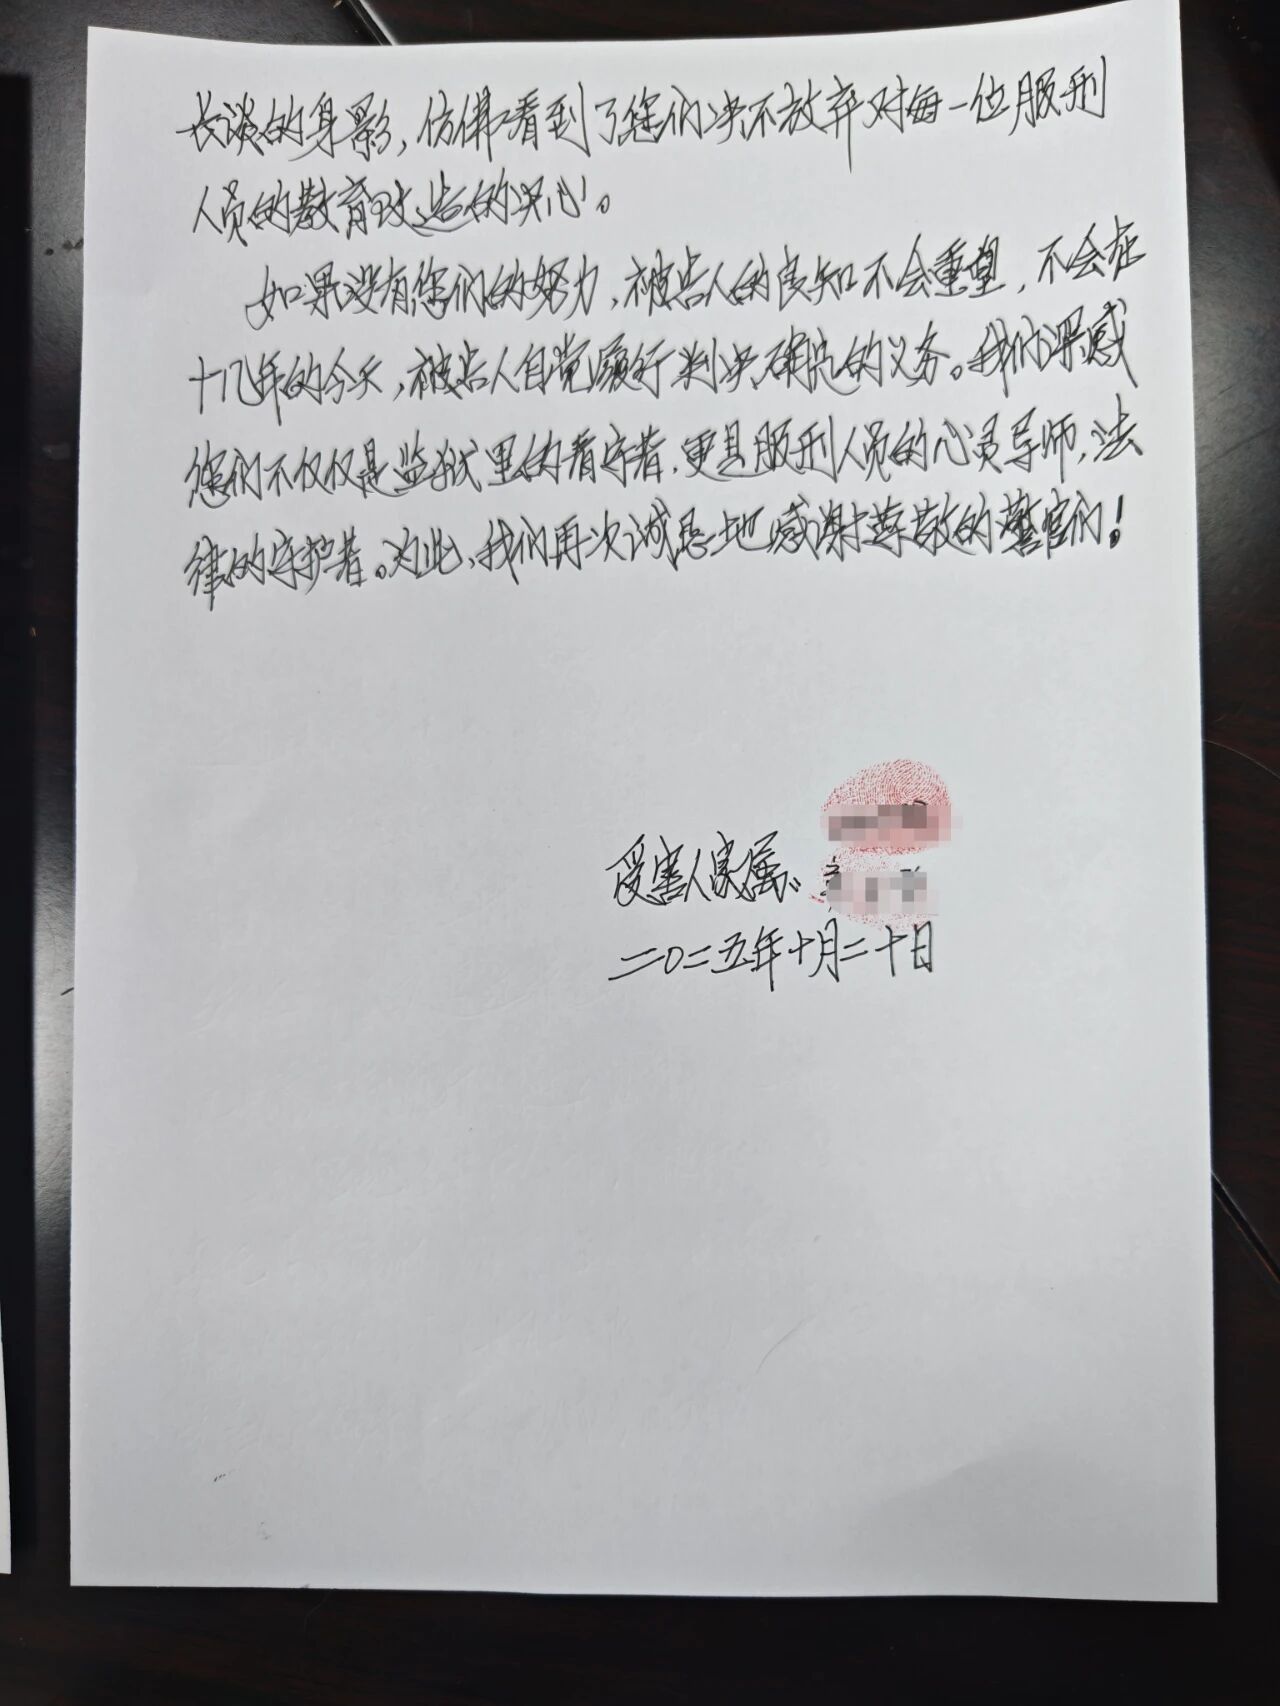 长谈的身影，仿佛看到了您们决不放弃对每一位服刑
人员的教育改造的决心。
如果没有您们的努力，被告人的良知不会重塑，不会在
十几年的今天，被告人自觉履行判决确定的义务。我们深感
您们不仅仅是监狱里的看守者，更是服刑人员的心灵导师，法
律的守护者。为此，我们再次诚恳地感谢尊敬的警官们！
受害人家属：
二〇二五年十月二十日